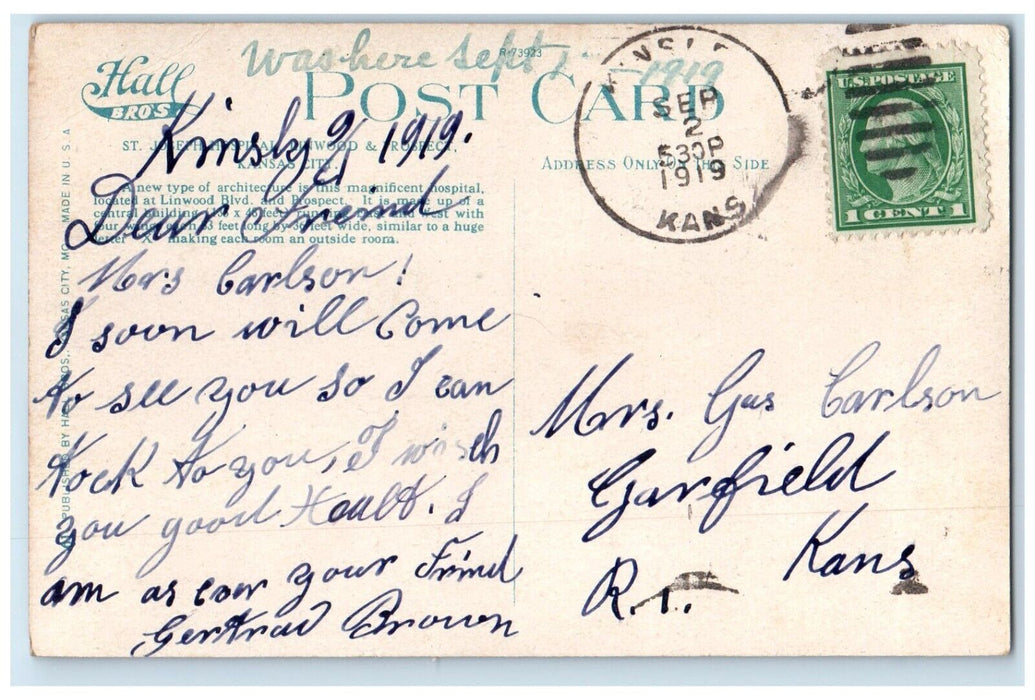 Hall
BRO'S
R-73923
Was here Sept 1919
POST CARD
ST. JOSEPH HOSPITAL, LINWOOD & PROSPECT,
KANSAS CITY.
ADDRESS ONLY ON THIS SIDE
A new type of architecture is this magnificent hospital,
located at Linwood Blvd. and Prospect. It is made up of a
central building x 4 feet, running east and west with
four wings each 3 feet long by 36 feet wide, similar to a huge
letter "X" making each room an outside room.
PUBLISHED BY HALL BROS., KANSAS CITY, MO. MADE IN U.S.A
Kinsly 9/1 1919.
Dear Freind
Mrs Carlson!
I soon will Come
to see you so I can
tock to you, I wisch
you good Healt. I
am as ever your Frind
Gertrud Brown
KINSLE
SEP
2
530P
1919
KANS
U.S. POSTAGE
1 CENT 1
Mrs. Gus Carlson
Garfield
Kans
R. 1.